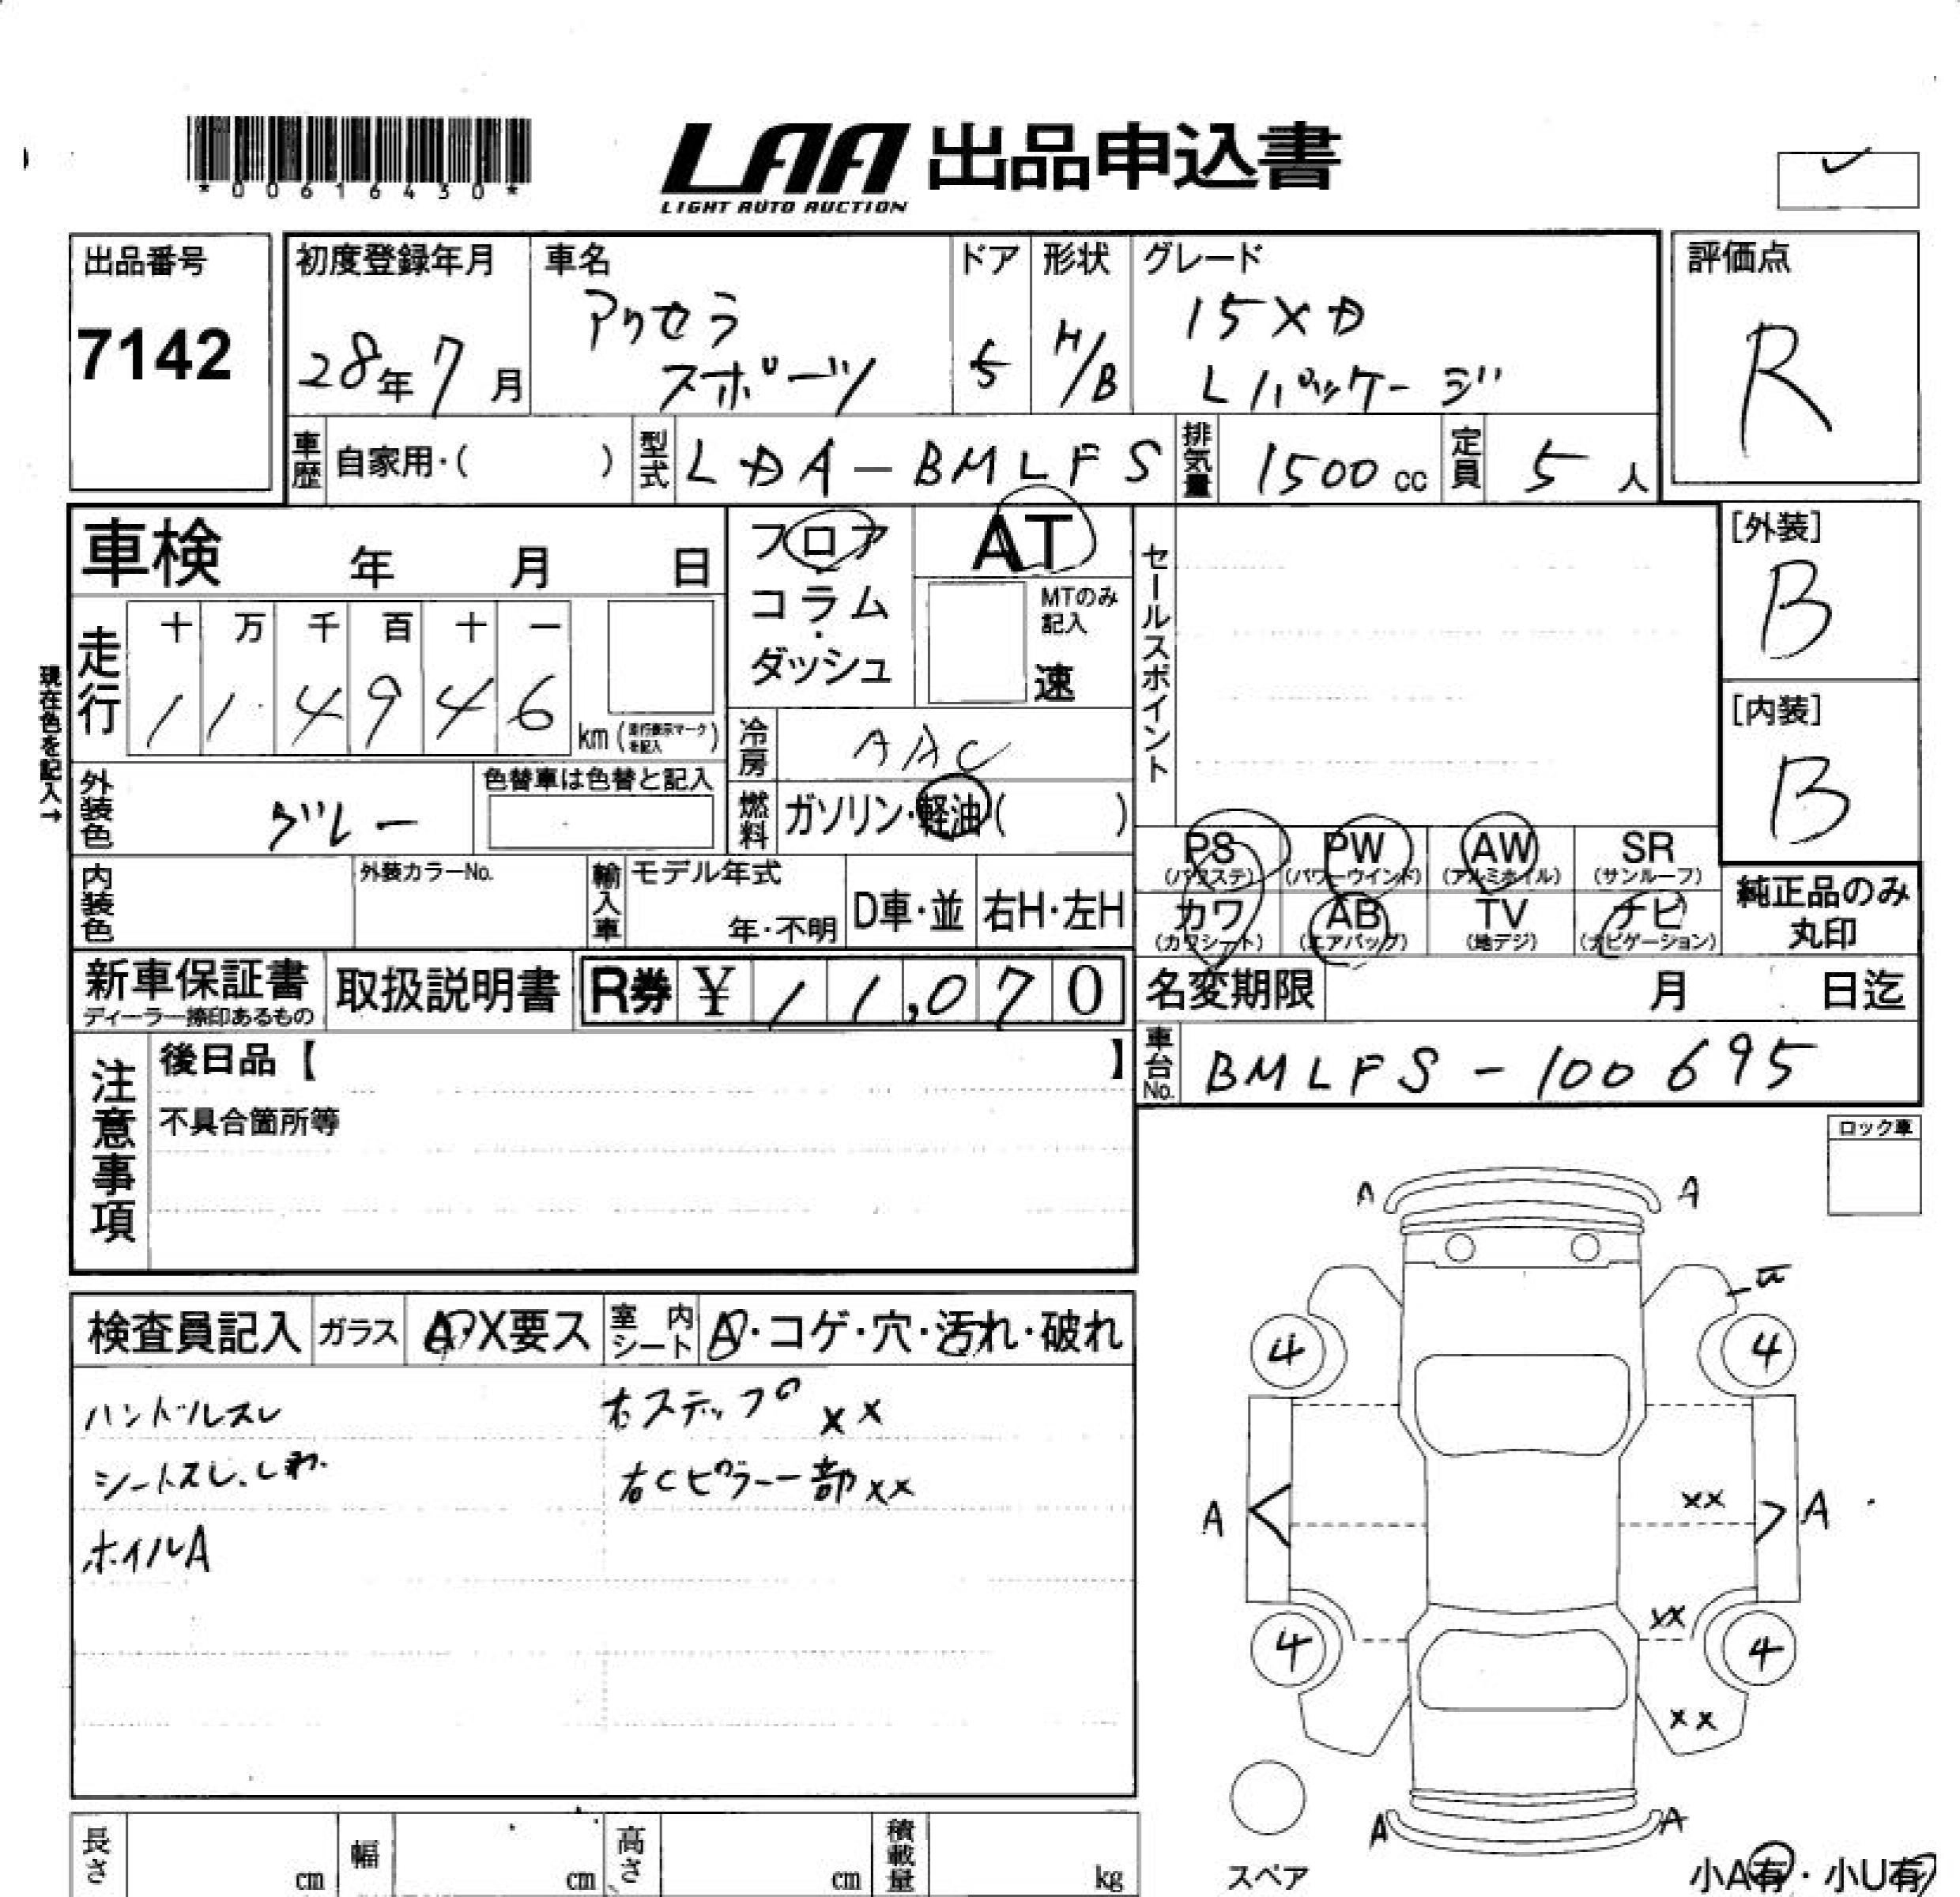 *00616430*
LAA 出品申込書
LIGHT AUTO AUCTION
出品番号
7142
初度登録年月
28年7月
車名
アクセラ
スポーツ
ドア
5
形状
H/B
グレード
15XD
Lパッケージ
評価点
R
車歴
自家用・( )
型式
LDA-BMLFS
排気量
1500cc
定員
5人
車検 年 月 日
フロア
コラム
・
ダッシュ
AT
MTのみ
記入
速
セールスポイント
[外装]
B
[内装]
B
現在色を記入→
走行
十 万 千 百 十 一
1 1 4 9 4 6
km(走行表示マークを記入)
冷房
AAC
外装色
グレー
色替車は色替と記入
燃料
ガソリン・軽油( )
PS
(パワステ)
PW
(パワーウインド)
AW
(アルミホイル)
SR
(サンルーフ)
カワ
(カワシート)
AB
(エアバッグ)
TV
(地デジ)
ナビ
(ナビゲーション)
純正品のみ
丸印
内装色
外装カラーNo.
輸入車
モデル年式
年・不明
D車・並
右H・左H
新車保証書
ディーラー捺印あるもの
取扱説明書
R券 ¥11,070
名変期限 月 日迄
車台No.
BMLFS-100695
注意事項
後日品【 】
不具合箇所等
ロック車
検査員記入
ガラス
A・X要ス
室内シート
A・コゲ・穴・汚れ・破れ
ハンドルスレ
シートスレ、しわ
ホイルA
右ステップ XX
右Cピラー部XX
A A
4 4
XX
A A
XX
4 4
XX
A A
スペア
小A有・小U有
長さ cm
幅 cm
高さ cm
積載量 kg